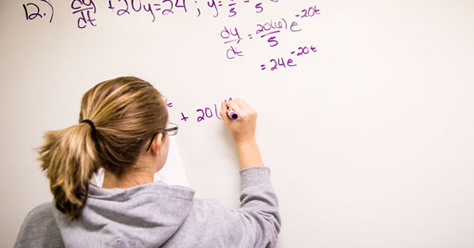 12.) dy/dt + 20y = 24 ; y = 6/5 - 6/5 e^-20t
dy/dt = 20(6)/5 e^-20t
= 24e^-20t
+ 20(